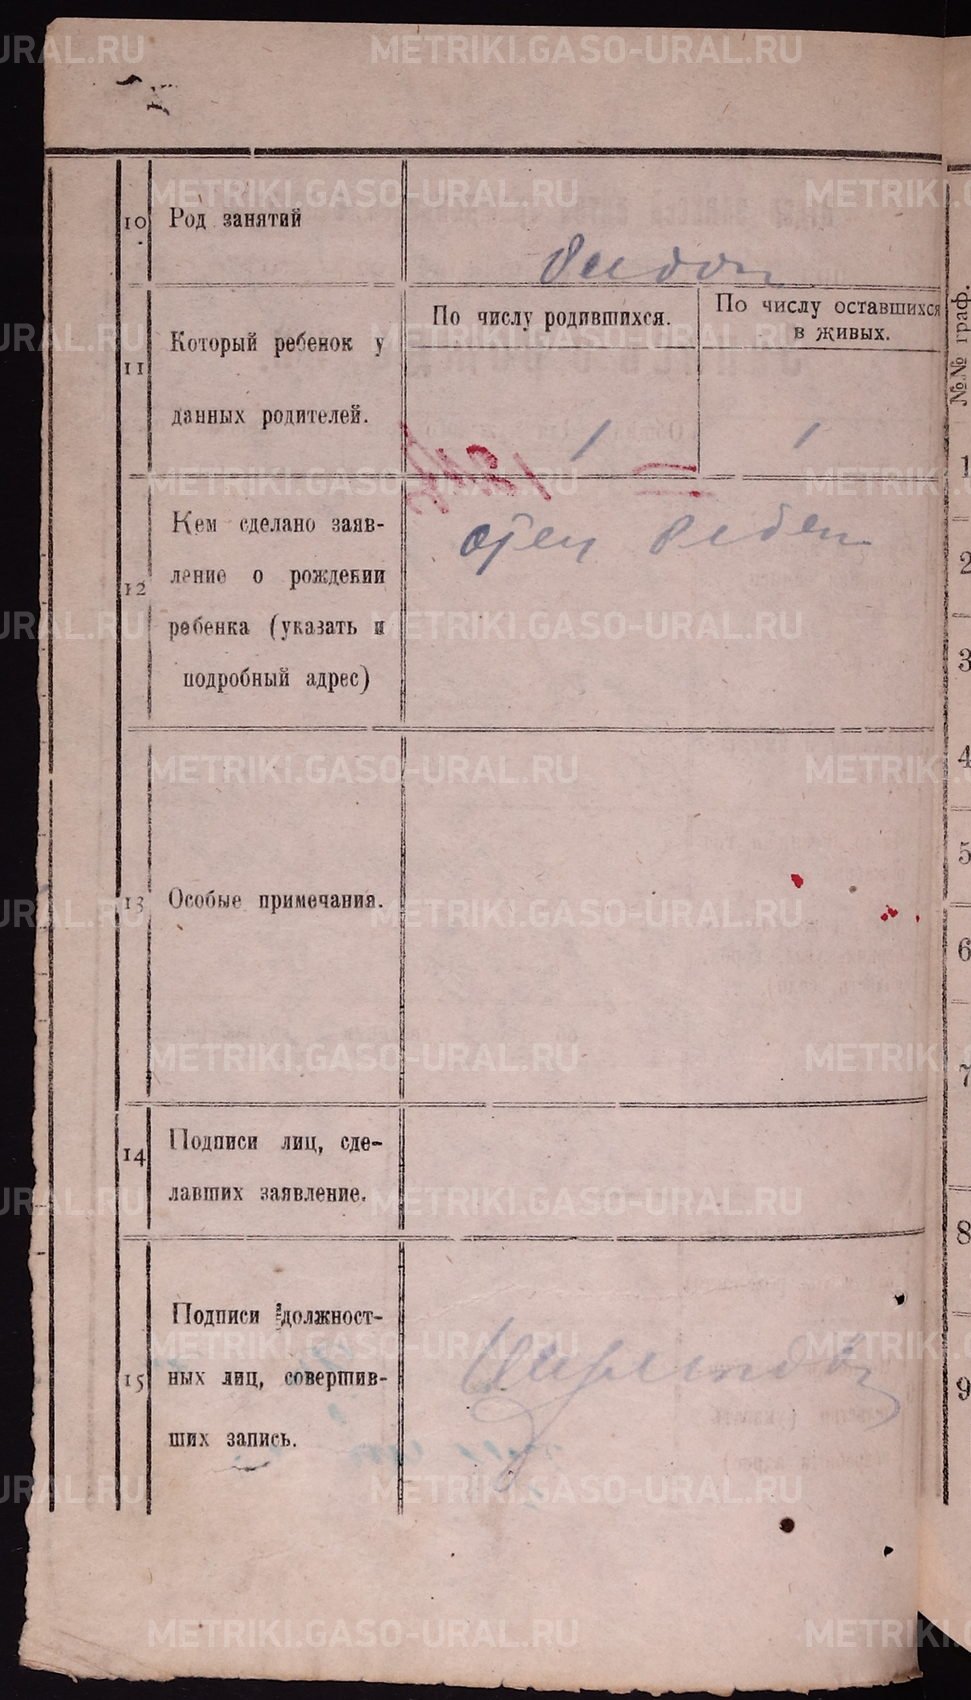 METRIKI.GASO-URAL.RU
10 Род занятий
11 Который ребенок у
данных родителей.
По числу родившихся.
По числу оставшихся
в живых.
1
1
12 Кем сделано заяв-
ление о рождении
ребенка (указать и
подробный адрес)
отец ребен
13 Особые примечания.
14 Подписи лиц, сде-
лавших заявление.
15 Подписи должност-
ных лиц, совершив-
ших запись.
№№ граф.
1
2
3
4
5
6
7
8
9